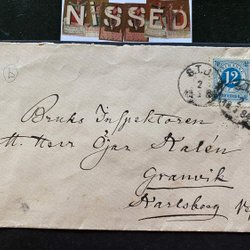 NiSSED
12
Bruks Inspektoren
H. Herr Öjar Kalén
Granvik
Karlsborg